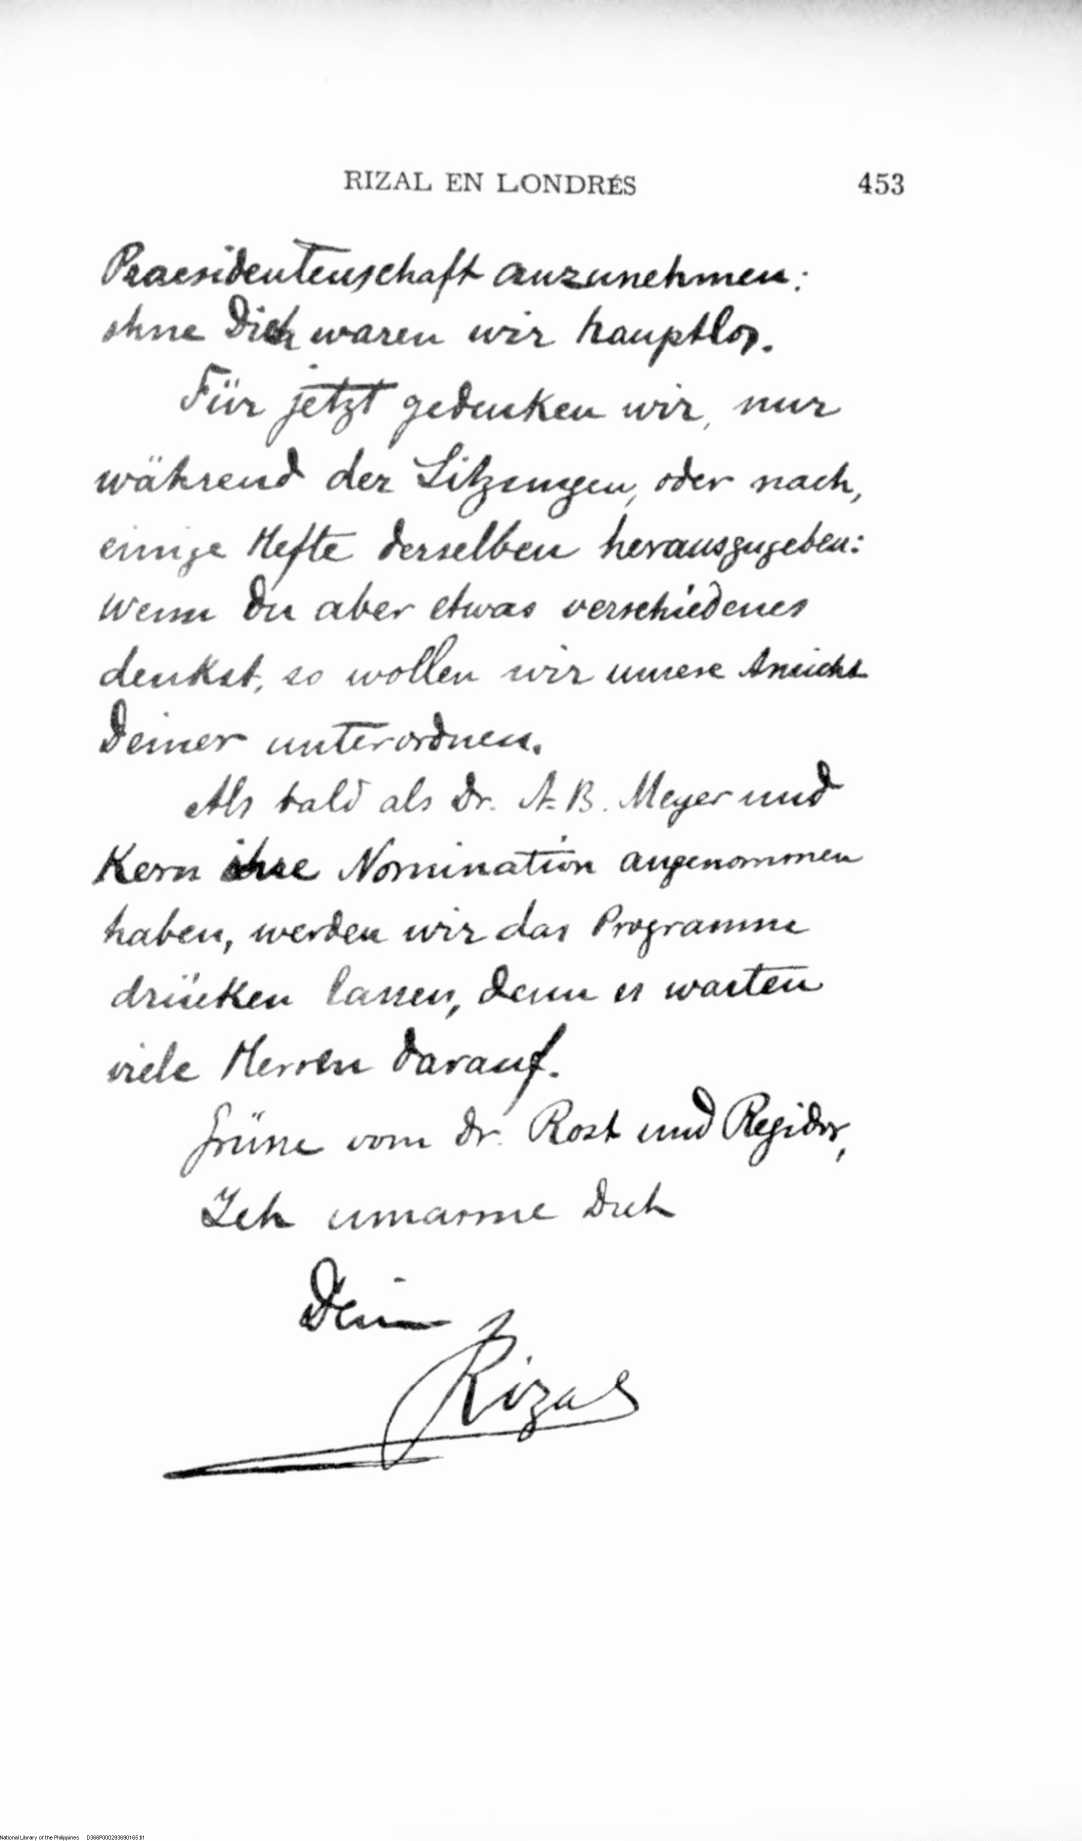 RIZAL EN LONDRÉS 453
Praesidentenschaft anzunehmen:
ohne Dich waren wir hauptlos.
Für jetzt gedenken wir, nur
während der Sitzungen, oder nach,
einige Hefte derselben herauszugeben:
wenn du aber etwas verschiedenes
denkst, so wollen wir unsere Ansicht
Deiner unterordnen.
Als bald als Dr. A. B. Meyer und
Kern ihre Nomination angenommen
haben, werden wir das Programm
drücken lassen, denn es warten
viele Herren darauf.
Grüsse vom Dr. Rost und Regidor,
Ich umarme Dich
Dein
Rizal
National Library of the Philippines